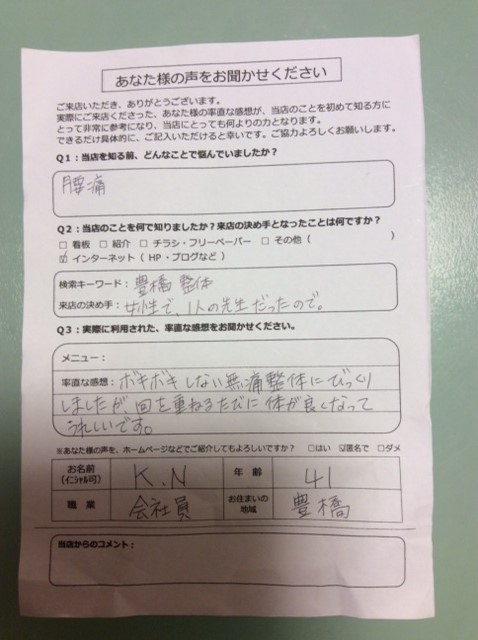 あなた様の声をお聞かせください
ご来店いただき、ありがとうございます。
実際にご来店くださった、あなた様の率直な感想が、当店のことを初めて知る方に
とって非常に参考になり、当店にとっても何よりの力となります。
できるだけ具体的に、ご記入いただけると幸いです。ご協力よろしくお願いします。
Q1:当店を知る前、どんなことで悩んでいましたか?
腰痛
Q2:当店のことを何で知りましたか?来店の決め手となったことは何ですか?
□ 看板 □ 紹介 □ チラシ・フリーペーパー □ その他( )
☑ インターネット( HP・ブログなど )
検索キーワード: 豊橋 整体
来店の決め手: 女性で、1人の先生だったので。
Q3:実際に利用された、率直な感想をお聞かせください。
メニュー:
率直な感想: ボキボキしない無痛整体にびっくり
しましたが、回を重ねるたびに体が良くなって
うれしいです。
※あなた様の声を、ホームページなどでご紹介してもよろしいですか? □はい ☑匿名で □ダメ
お名前 (イニシャル可) K.N 年 齢 41
職 業 会社員 お住まいの地域 豊橋
当店からのコメント: